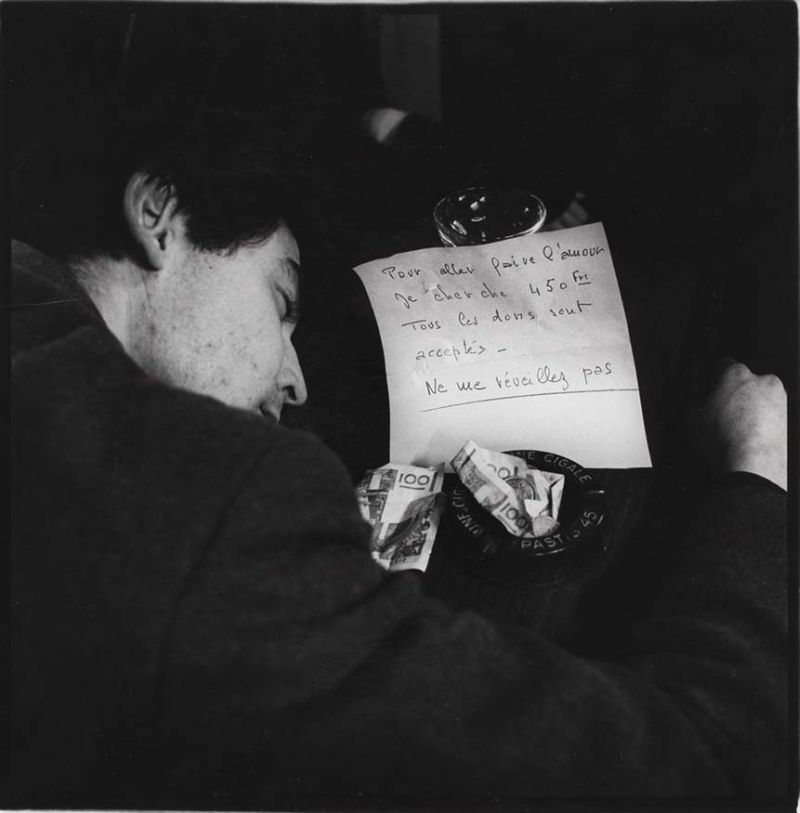 Pour aller faire l'amour
Je cherche 450 Frs
Tous les dons sont
acceptés –
Ne me réveillez pas
100
100
100
UNE CIGALE
PASTIS 45
UNE CIG